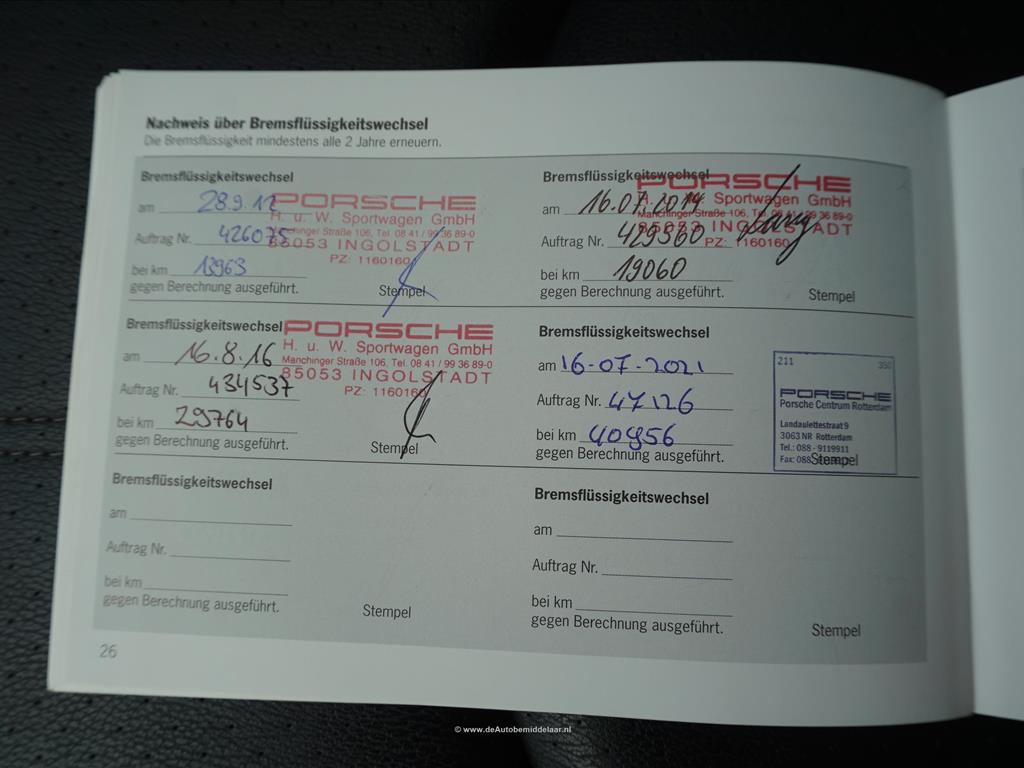 Nachweis über Bremsflüssigkeitswechsel
Die Bremsflüssigkeit mindestens alle 2 Jahre erneuern.
Bremsflüssigkeitswechsel
am 28.9.12
Auftrag Nr. 426075
bei km 13963
gegen Berechnung ausgeführt.
Stempel
PORSCHE
H. u. W. Sportwagen GmbH
Manchinger Straße 106, Tel. 08 41 / 99 36 89-0
85053 INGOLSTADT
PZ: 1160160
Bremsflüssigkeitswechsel
am 16.07.2014
Auftrag Nr. 429360
bei km 19060
gegen Berechnung ausgeführt.
Stempel
PORSCHE
H. u. W. Sportwagen GmbH
Manchinger Straße 106, Tel. 08 41 / 99 36 89-0
85053 INGOLSTADT
PZ: 1160160
Bremsflüssigkeitswechsel
am 16.8.16
Auftrag Nr. 434537
bei km 29764
gegen Berechnung ausgeführt.
Stempel
PORSCHE
H. u. W. Sportwagen GmbH
Manchinger Straße 106, Tel. 08 41 / 99 36 89-0
85053 INGOLSTADT
PZ: 1160160
Bremsflüssigkeitswechsel
am 16-07-2021
Auftrag Nr. 47126
bei km 40956
gegen Berechnung ausgeführt.
Stempel
211 350
PORSCHE
Porsche Centrum Rotterdam
Landaulettestraat 9
3063 NR Rotterdam
Tel.: 088 - 9119911
Fax: 088
Bremsflüssigkeitswechsel
am
Auftrag Nr.
bei km
gegen Berechnung ausgeführt.
Stempel
Bremsflüssigkeitswechsel
am
Auftrag Nr.
bei km
gegen Berechnung ausgeführt.
Stempel
26
© www.deAutobemiddelaar.nl